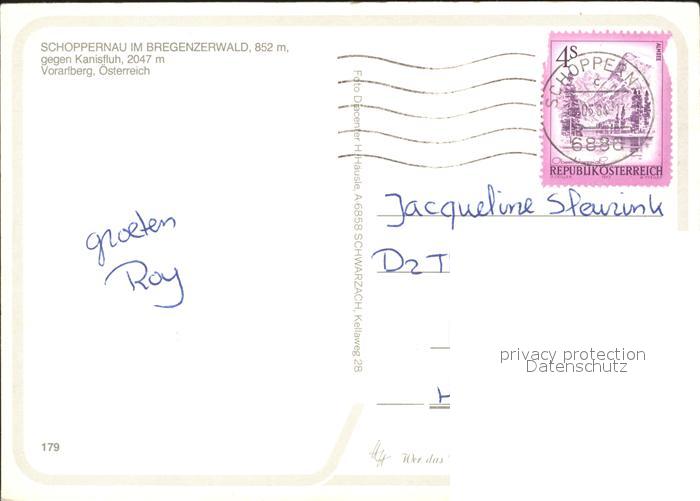 SCHOPPERNAU IM BREGENZERWALD, 852 m,
gegen Kanisfluh, 2047 m
Vorarlberg, Österreich
Foto Diacenter H. Häusle, A-6858 SCHWARZACH, Kellaweg 28
4S
ALMSEE
SCHOPPERN
6886
REPUBLIK ÖSTERREICH
groeten
Roy
Jacqueline Steuzink
Dr T
H
privacy protection
Datenschutz
179
Wer das